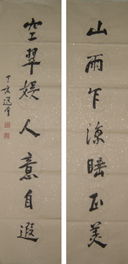 山雨乍涼睡正美
空翠娛人意自遐
丁亥